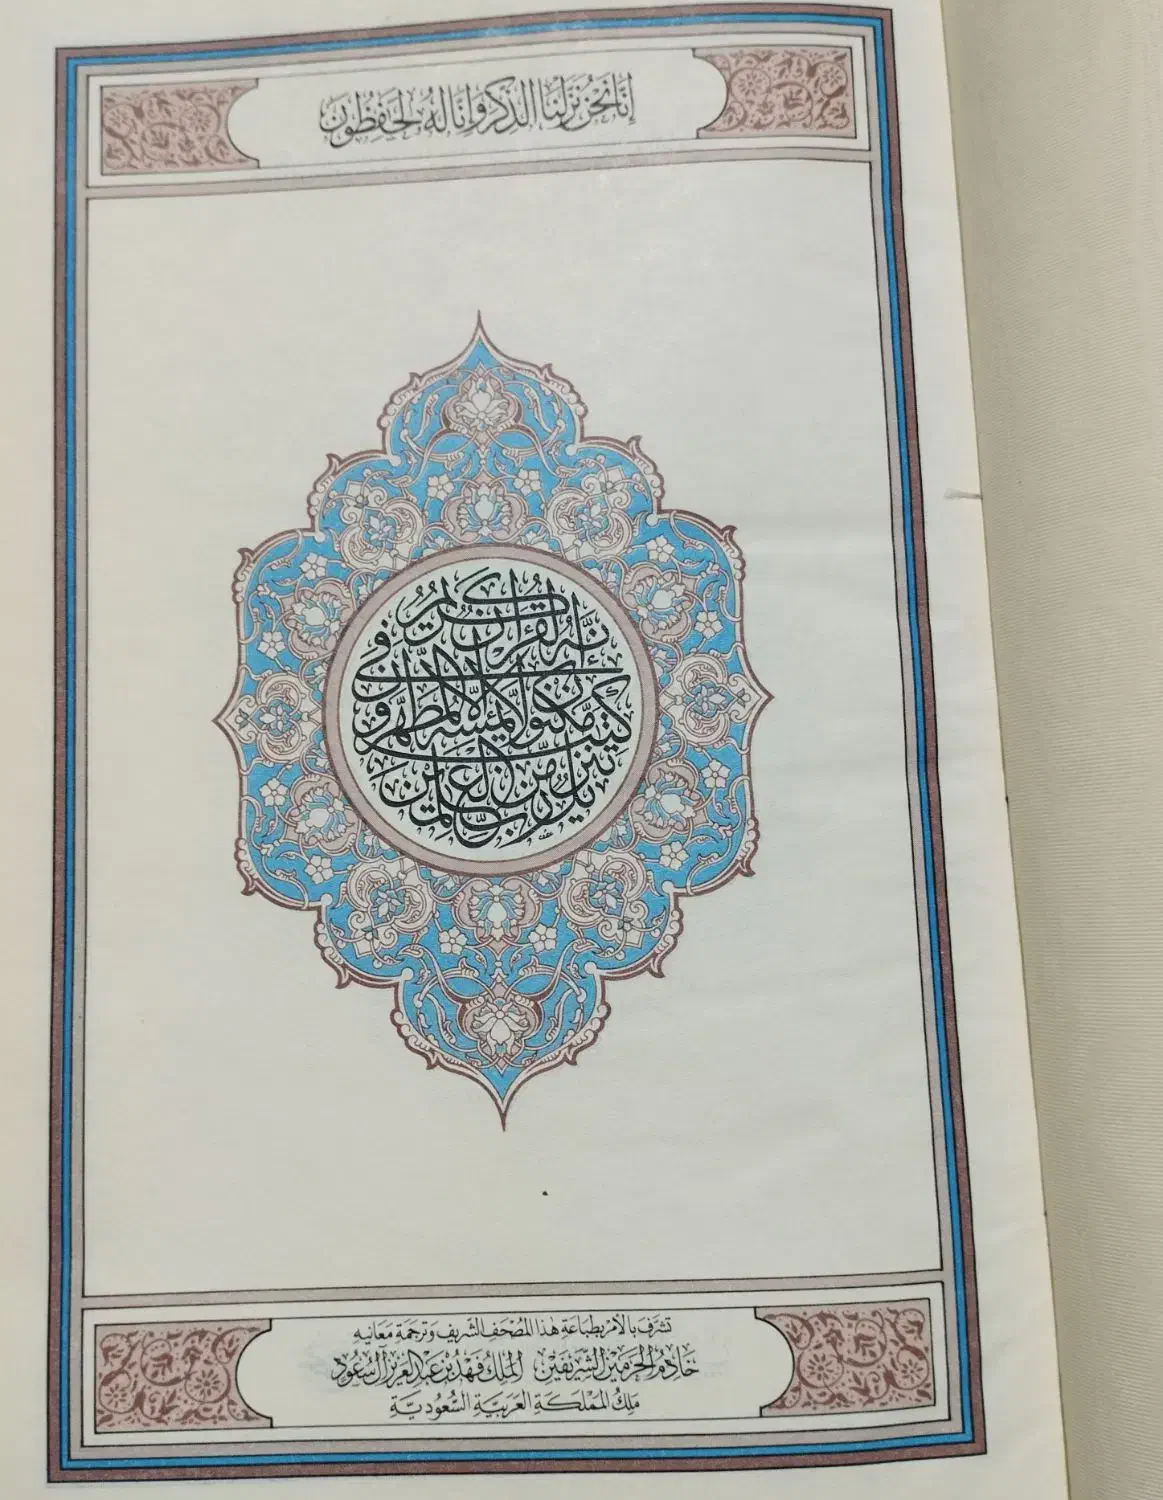 إنا نحن نزلنا الذكر وإنا له لحفظون
إنه لقرءان كريم
في كتب مكنون لا يمسه إلا المطهرون
تنزيل من رب العلمين
تشرف بالأمر بطباعة هذا المصحف الشريف وترجمة معانيه
خادم الحرمين الشريفين الملك فهد بن عبد العزيز آل سعود
ملك المملكة العربية السعودية